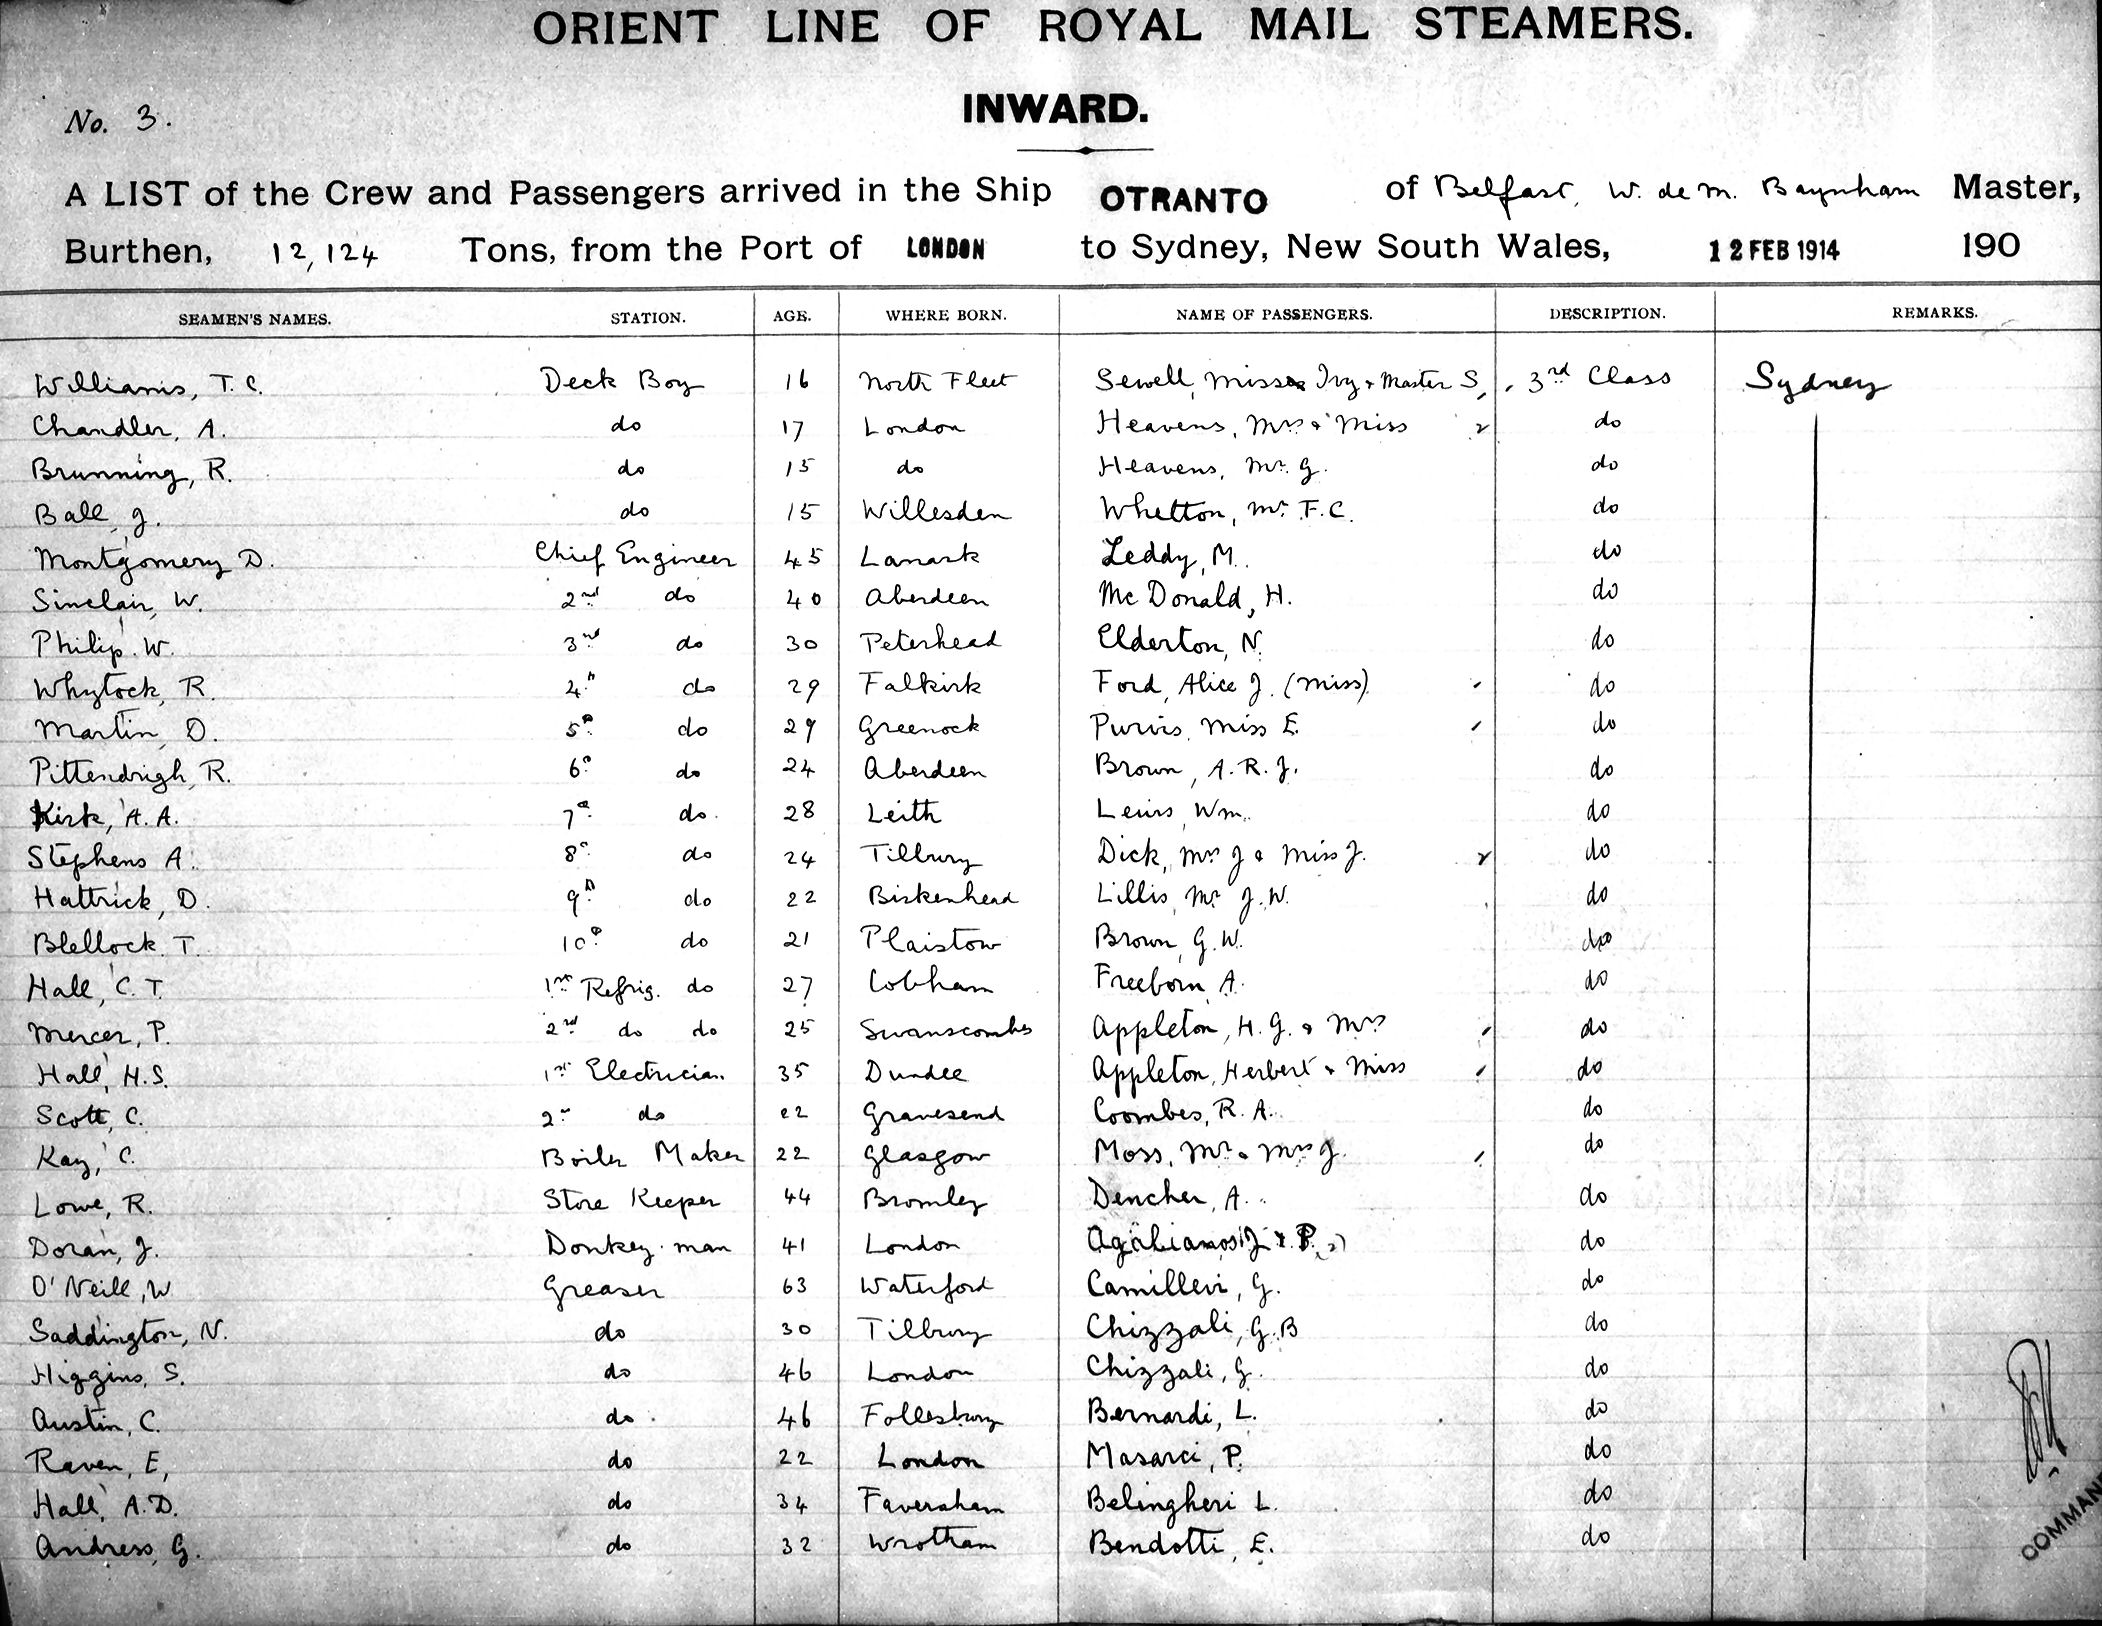 ORIENT LINE OF ROYAL MAIL STEAMERS.
INWARD.
No. 3.
A LIST of the Crew and Passengers arrived in the Ship OTRANTO of Belfast, W. de M. Baynham Master,
Burthen, 12,124 Tons, from the Port of LONDON to Sydney, New South Wales, 12 FEB 1914 190
SEAMEN'S NAMES. STATION. AGE. WHERE BORN. NAME OF PASSENGERS. DESCRIPTION. REMARKS.
Williams, T. C. Deck Boy 16 North Fleet Sewell, Misses Ivy & Master S, 3rd Class Sydney
Chandler, A. do 17 London Heavens, Mrs & Miss 2 do
Brunning, R. do 15 do Heavens, Mr. G. do
Ball, J. do 15 Willesden Whetton, Mr. F. C. do
Montgomery D. Chief Engineer 45 Lanark Leddy, M. do
Sinclair, W. 2nd do 40 Aberdeen McDonald, H. do
Philip. W. 3rd do 30 Peterhead Elderton, N. do
Whytock, R. 4th do 29 Falkirk Ford, Alice J. (Miss) do
Martin, D. 5th do 29 Greenock Purvis, Miss E. do
Pittendrigh, R. 6th do 24 Aberdeen Brown, A. R. J. do
Kirk, A. A. 7th do. 28 Leith Lewis, Wm. do
Stephens A. 8th do 24 Tilbury Dick, Mrs J & Miss J. 2 do
Hattrick, D. 9th do 22 Birkenhead Lillis, Mr J. W. do
Blellock. T. 10th do 21 Plaistow Brown, G. W. do
Hall, C. T. 1st Refrig. do 27 Cobham Freeborn, A. do
Mercer, P. 2nd do do 25 Swanscombe Appleton, H. G. & Mrs do
Hall, H. S. 1st Electrician. 35 Dundee Appleton, Herbert & Miss do
Scott, C. 2nd do 22 Gravesend Coombes, R. A. do
Kay, C. Boiler Maker 22 Glasgow Moss, Mr. & Mrs J. do
Lowe, R. Store Keeper 44 Bromley Dencher, A. do
Doran, J. Donkey-man 41 London Agalianos, J & P. (2) do
O'Neill, W Greaser 63 Waterford Camilleri, G. do
Saddington, N. do 30 Tilbury Chizzali, G. B do
Higgins, S. do 46 London Chizzali, G. do
Austin, C. do. 46 Follesbury Bernardi, L. do
Raven, E, do 22 London Masarei, P. do
Hall, A. D. do 34 Faversham Belingheri L. do
Andress, G. do 32 Wrotham Bendotti, E. do
COMMAN